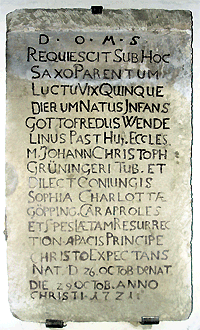 D · O · M · S
REQUIESCIT SUB HOC
SAXO PARENTUM
LUCTU VIX QUINQUE
DIERUM NATUS INFANS
GOTTOFREDUS WENDE
LINUS PAST HUJ. ECCLES.
M. JOHANN CHRISTOPH
GRÜNINGERI TUB. ET
DILECT CONIUNGIS
SOPHIA CHARLOTTÆ
GÖPPING. CARA PROLES
ET SPES LÆTAM RESURREC
TION. A PACIS PRINCIPE
CHRISTO EXPECTANS
NAT D 26. OCTOB. DENAT.
DIE 29. OCTOB. ANNO
CHRISTI · 1721